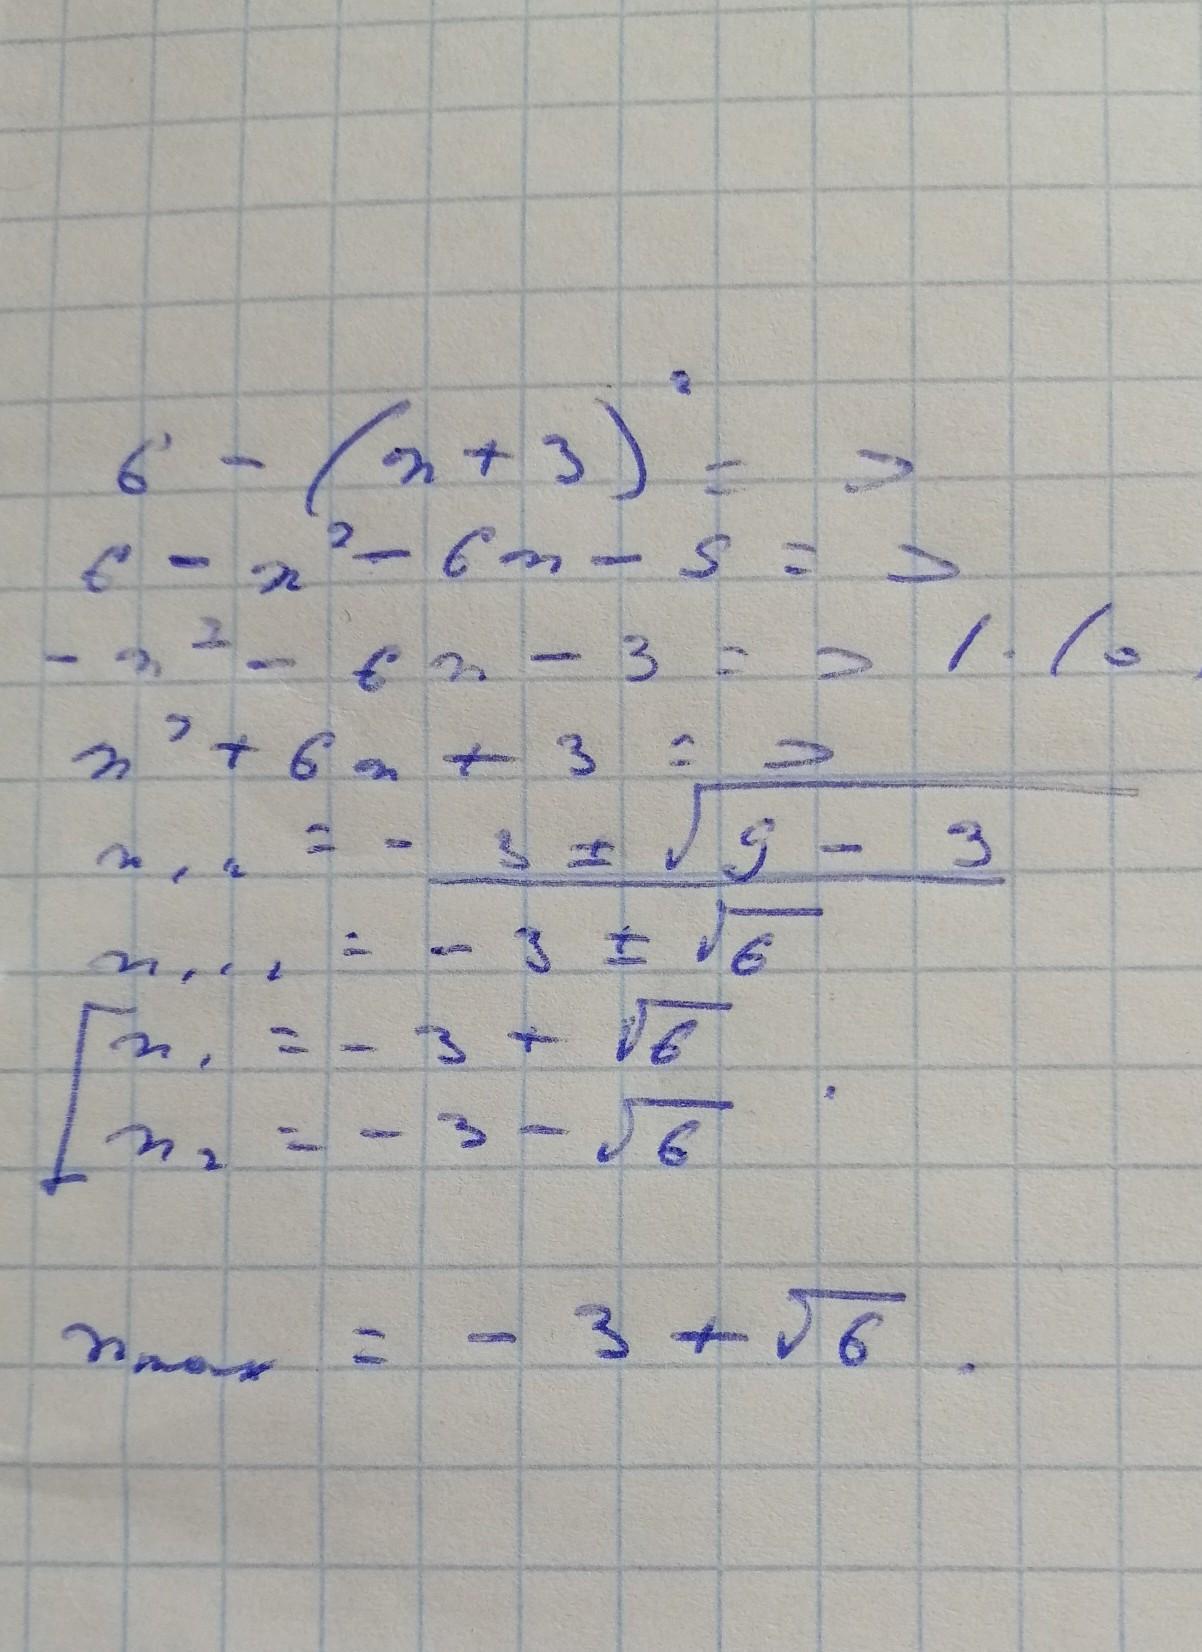 6 - (x + 3)² = 0
6 - x² - 6x - 9 = 0
- x² - 6x - 3 = 0 / · (
x² + 6x + 3 = 0
x₁,₂ = - 3 ± √9 - 3
x₁,₂ = - 3 ± √6
x₁ = - 3 + √6
x₂ = - 3 - √6
xmax = - 3 + √6.